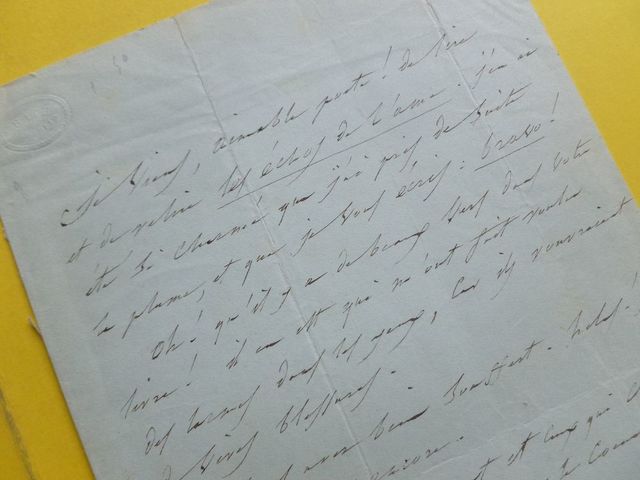 Je viens, aimable poete! de lire
et de relire les échos de l'âme. j'en ai
été si charmée que j'ai pris de suite
la plume, et que je vous écris: bravo!
Oh! qu'il y a de beaux vers dans votre
livre! il en est qui m'ont fait rouler
des larmes dans les yeux, car ils rouvraient
de vives blessures.
avez bien souffert. hélas!
encore.
et ceux qui